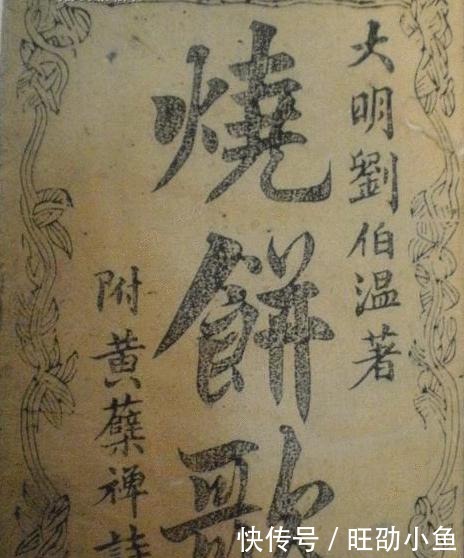 大明劉伯温著
燒餅歌
附黃蘗禅詩
快传号/旺劭小鱼